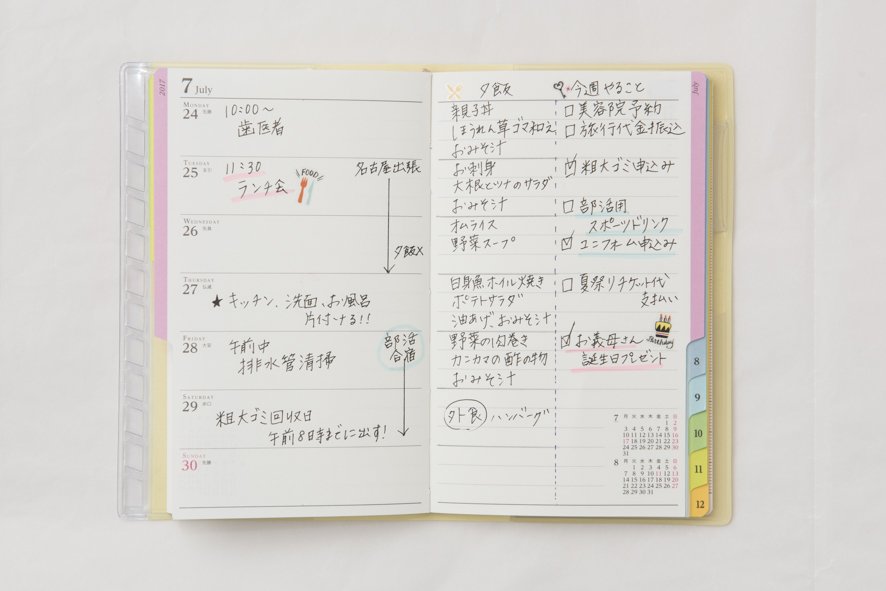 2017
7 July
MONDAY
24 先勝
10:00〜
歯医者
TUESDAY
25 友引
11:30
ランチ会
FOOD
名古屋出張
WEDNESDAY
26 先勝
夕飯×
THURSDAY
27 仏滅
★キッチン、洗面、お風呂
片付ける!!
FRIDAY
28 大安
午前中
排水管清掃
部活
合宿
SATURDAY
29 赤口
粗大ゴミ回収日
午前8時までに出す!
SUNDAY
30 先勝
夕飯
親子丼
ほうれん草ゴマ和え
おみそ汁
お刺身
大根とツナのサラダ
おみそ汁
オムライス
野菜スープ
白身魚ホイル焼き
ポテトサラダ
油あげ、おみそ汁
野菜の肉巻き
カニカマの酢の物
おみそ汁
外食 ハンバーグ
今週やること
□美容院予約
□旅行代金振込
☑粗大ゴミ申込み
□部活用
スポーツドリンク
☑ユニフォーム申込み
□夏祭りチケット代
支払い
☑お義母さん
誕生日プレゼント
Birthday
7 月 火 水 木 金 土 日
1 2
3 4 5 6 7 8 9
10 11 12 13 14 15 16
17 18 19 20 21 22 23
24 25 26 27 28 29 30
31
8 月 火 水 木 金 土 日
1 2 3 4 5 6
7 8 9 10 11 12 13
14 15 16 17 18 19 20
21 22 23 24 25 26 27
28 29 30 31
July
8
9
10
11
12